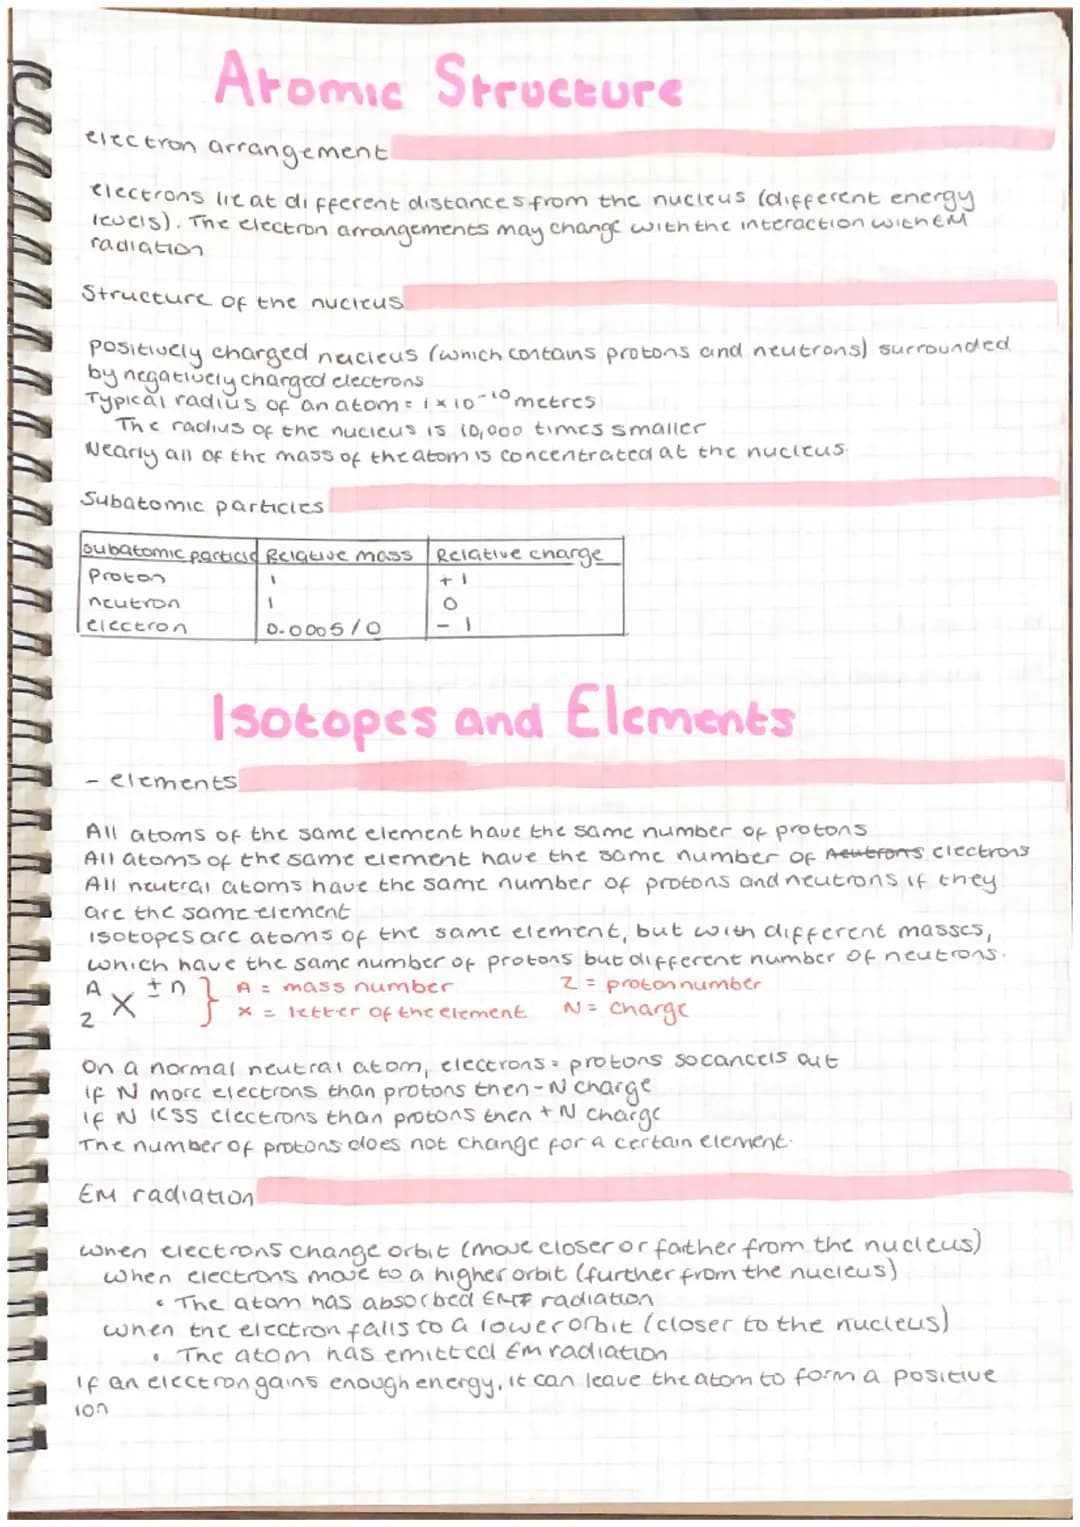 Atomic Structure
electron arrangement
electrons lie at different distances from the nucleus (different energy
levels). The electron arrangements may change with the interaction with EM
radiation
Structure of the nucleus
positively charged nucleus (which contains protons and neutrons) surrounded
by negatively charged electrons
Typical radius of an atom = 1 × 10⁻¹⁰ metres
The radius of the nucleus is 10,000 times smaller
Nearly all of the mass of the atom is concentrated at the nucleus.
Subatomic particles
subatomic particle Relative mass Relative charge
Proton 1 +1
neutron 1 0
electron 0.0005/0 -1
Isotopes and Elements
- elements
All atoms of the same element have the same number of protons
All atoms of the same element have the same number of neutrons electrons
All neutral atoms have the same number of protons and neutrons if they
are the same element
isotopes are atoms of the same element, but with different masses,
which have the same number of protons but different number of neutrons.
A ±n } A = mass number Z = proton number
Z X x = letter of the element N = charge
On a normal neutral atom, electrons = protons so cancels out
if N more electrons than protons then -N charge
if N less electrons than protons then +N charge
The number of protons does not change for a certain element.
EM radiation
when electrons change orbit (move closer or farther from the nucleus)
when electrons move to a higher orbit (further from the nucleus)
• The atom has absorbed EM radiation
when the electron falls to a lower orbit (closer to the nucleus)
• The atom has emitted EM radiation
If an electron gains enough energy, it can leave the atom to form a positive
ion